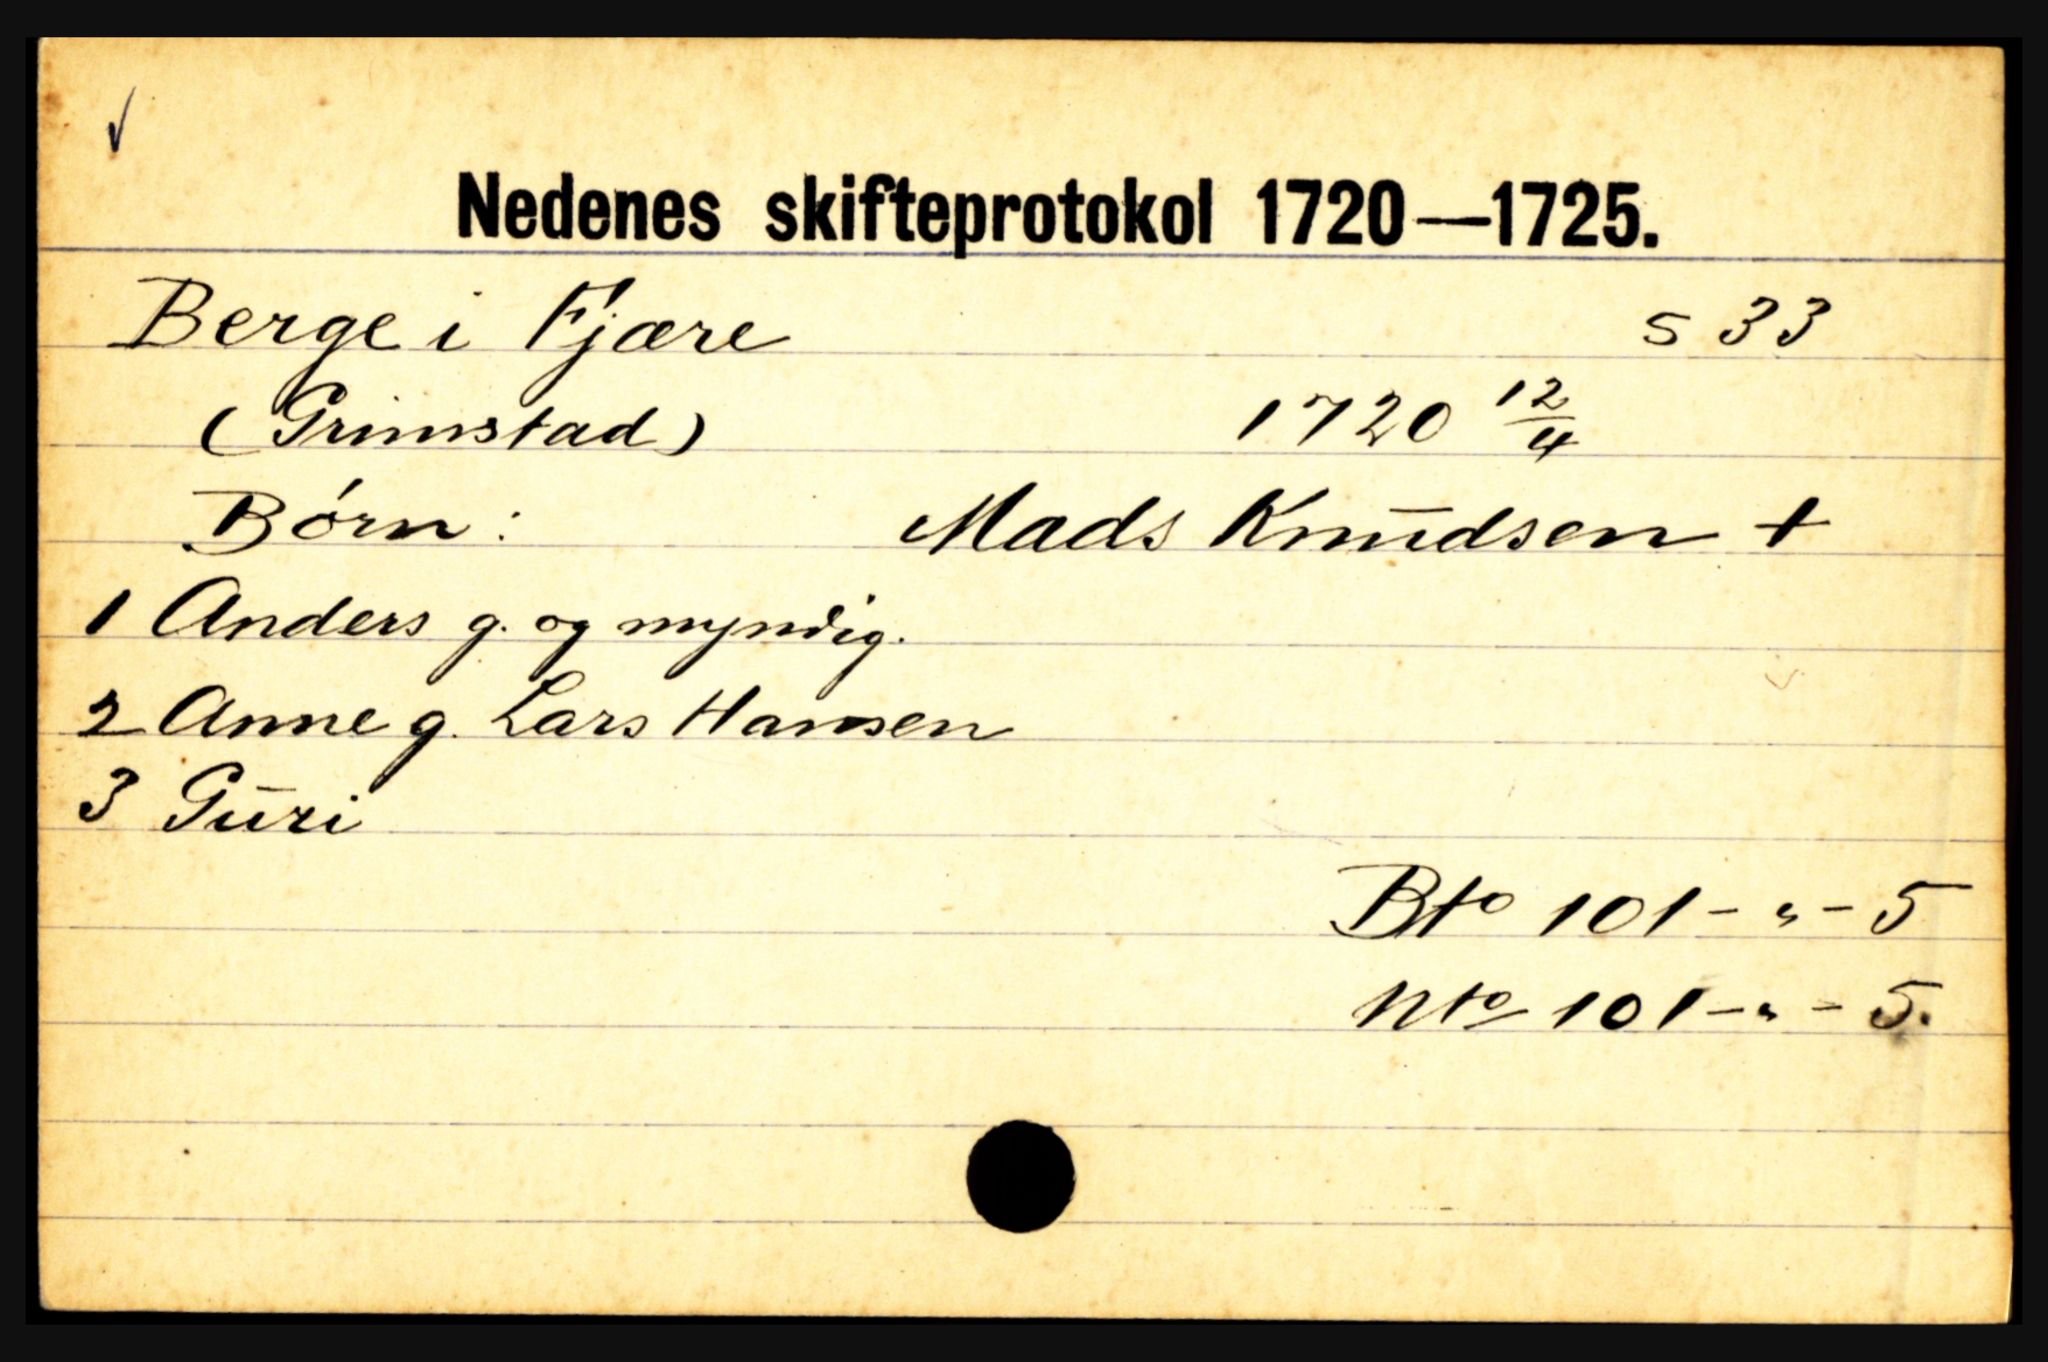 Nedenes skifteprotokol 1720—1725.
Berge i Fjære s 33
(Grimstad) 1720 12/4
Børn: Mads Knudsen +
1 Anders g. og myndig.
2 Anne g. Lars Hansen
3 Guri
Bto 101 - " - 5
Nto 101 - " - 5.